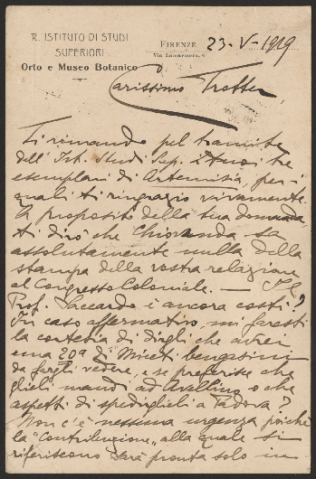 R. ISTITUTO DI STUDI
SUPERIORI
Orto e Museo Botanico
FIRENZE 23-V-1919
Via Lamarmora, 4
Carissimo Trotter
Ti rimando pel tramite
dell'Ist. Studi Sup. i tuoi tre
esemplari di Artemisia, per i
quali ti ringrazio vivamente.
A proposito della tua domanda,
ti dirò che Chiovenda sa
assolutamente nulla della
stampa della vostra relazione
al Congresso Coloniale. — Il
Prof. Saccardo è ancora costì?
In caso affermativo, mi faresti
la cortesia di dirgli che avrei
una 20a di Miceti bengasini
da fargli vedere, e se preferisce che
glieli mandi ad Avellino o che
aspetti di spedirglieli a Padova?
Non c'è nessuna urgenza poichè
la "Contribuzione" alla quale si
riferiscono sarà pronta solo in